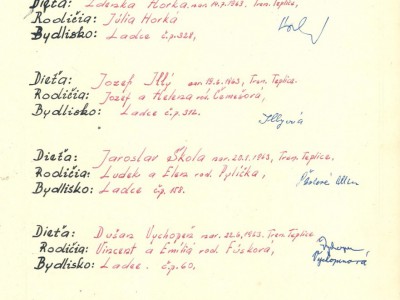 Dieťa: Zdenka Horká, nar. 14.7.1963, Tren. Teplice
Rodičia: Júlia Horká
Bydlisko: Ladce č.p. 328,
Dieťa: Jozef Illý nar. 19.6.1963, Tren. Teplice.
Rodičia: Jozef a Helena rod. Čemešová,
Bydlisko: Ladce č.p. 312.
Illyová
Dieťa: Jaroslav Škola nar. 20.1.1963, Tren. Teplice.
Rodičia: Ludek a Elen rod. Pylička,
Bydlisko: Ladce č.p. 158.
Dieťa: Dušan Vychopeň nar. 22.6.1963. Tren. Teplice
Rodičia: Vincent a Emília rod. Fúsková,
Bydlisko: Ladce. č.p. 60,
Vychopeň
Vychopňová